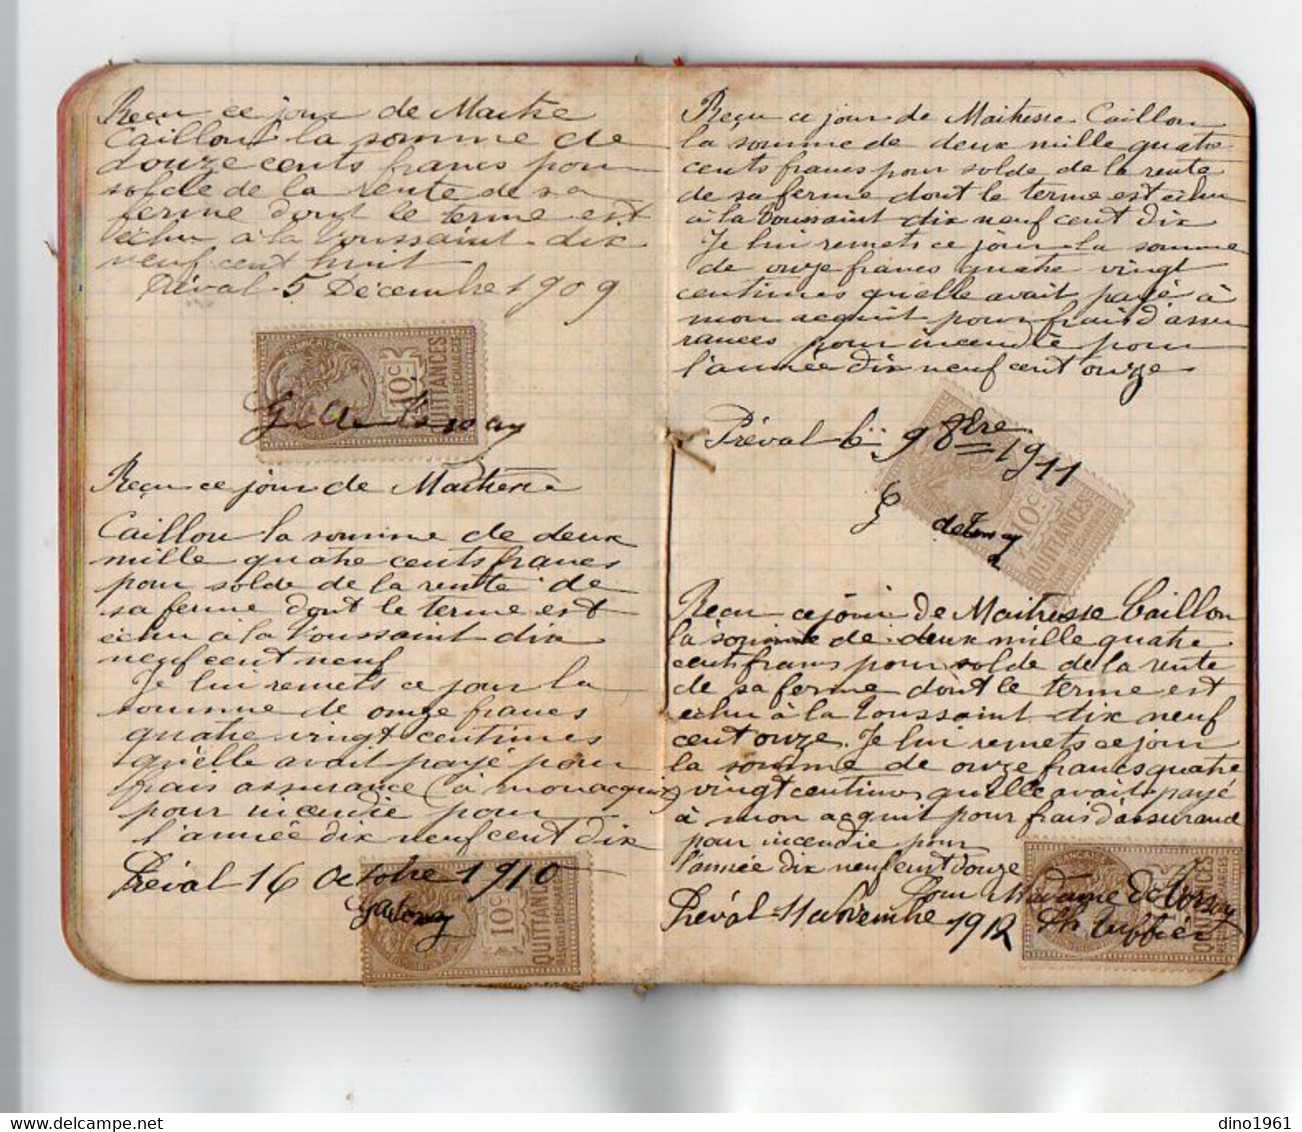 Reçu ce jour de Maitre
Caillon la somme de
douze cents francs pour
solde de la rente de sa
ferme dont le terme est
échu à la Toussaint dix
neuf cent huit
Préval 5 Décembre 1909
FRANÇAISE
10c
QUITTANCES
REÇUS ET DÉCHARGES
Reçu ce jour de Maitresse
Caillon la somme de deux
mille quatre cents francs
pour solde de la rente de
sa ferme dont le terme est
échu à la Toussaint dix
neuf cent neuf
Je lui remets ce jour la
somme de onze francs
quatre vingt centimes
qu'elle avait payé pour
frais assurance (à mon acquit)
pour incendie pour
l'année dix neuf cent dix
Préval 16 Octobre 1910
10c
QUITTANCES
REÇUS ET DÉCHARGES
Reçu ce jour de Maitresse Caillon
la somme de deux mille quatre
cents francs pour solde de la rente
de sa ferme dont le terme est échu
à la Toussaint dix neuf cent dix
Je lui remets ce jour la somme
de onze francs quatre vingt
centimes qu'elle avait payé à
mon acquit pour frais d'assu
rances pour incendie pour
l'année dix neuf cent onze
Préval le 9 8bre 1911
10c
QUITTANCES
REÇUS ET DÉCHARGES
Reçu ce jour de Maitresse Caillon
la somme de deux mille quatre
cents francs pour solde de la rente
de sa ferme dont le terme est
échu à la Toussaint dix neuf
cent onze. Je lui remets ce jour
la somme de onze francs quatre
vingt centimes qu'elle avait payé
à mon acquit pour frais d'assurance
pour incendie pour
l'année dix neuf cent douze
Pour Madame de
Préval 11 novembre 1912
FRANÇAISE
QUITTANCES
dino1961